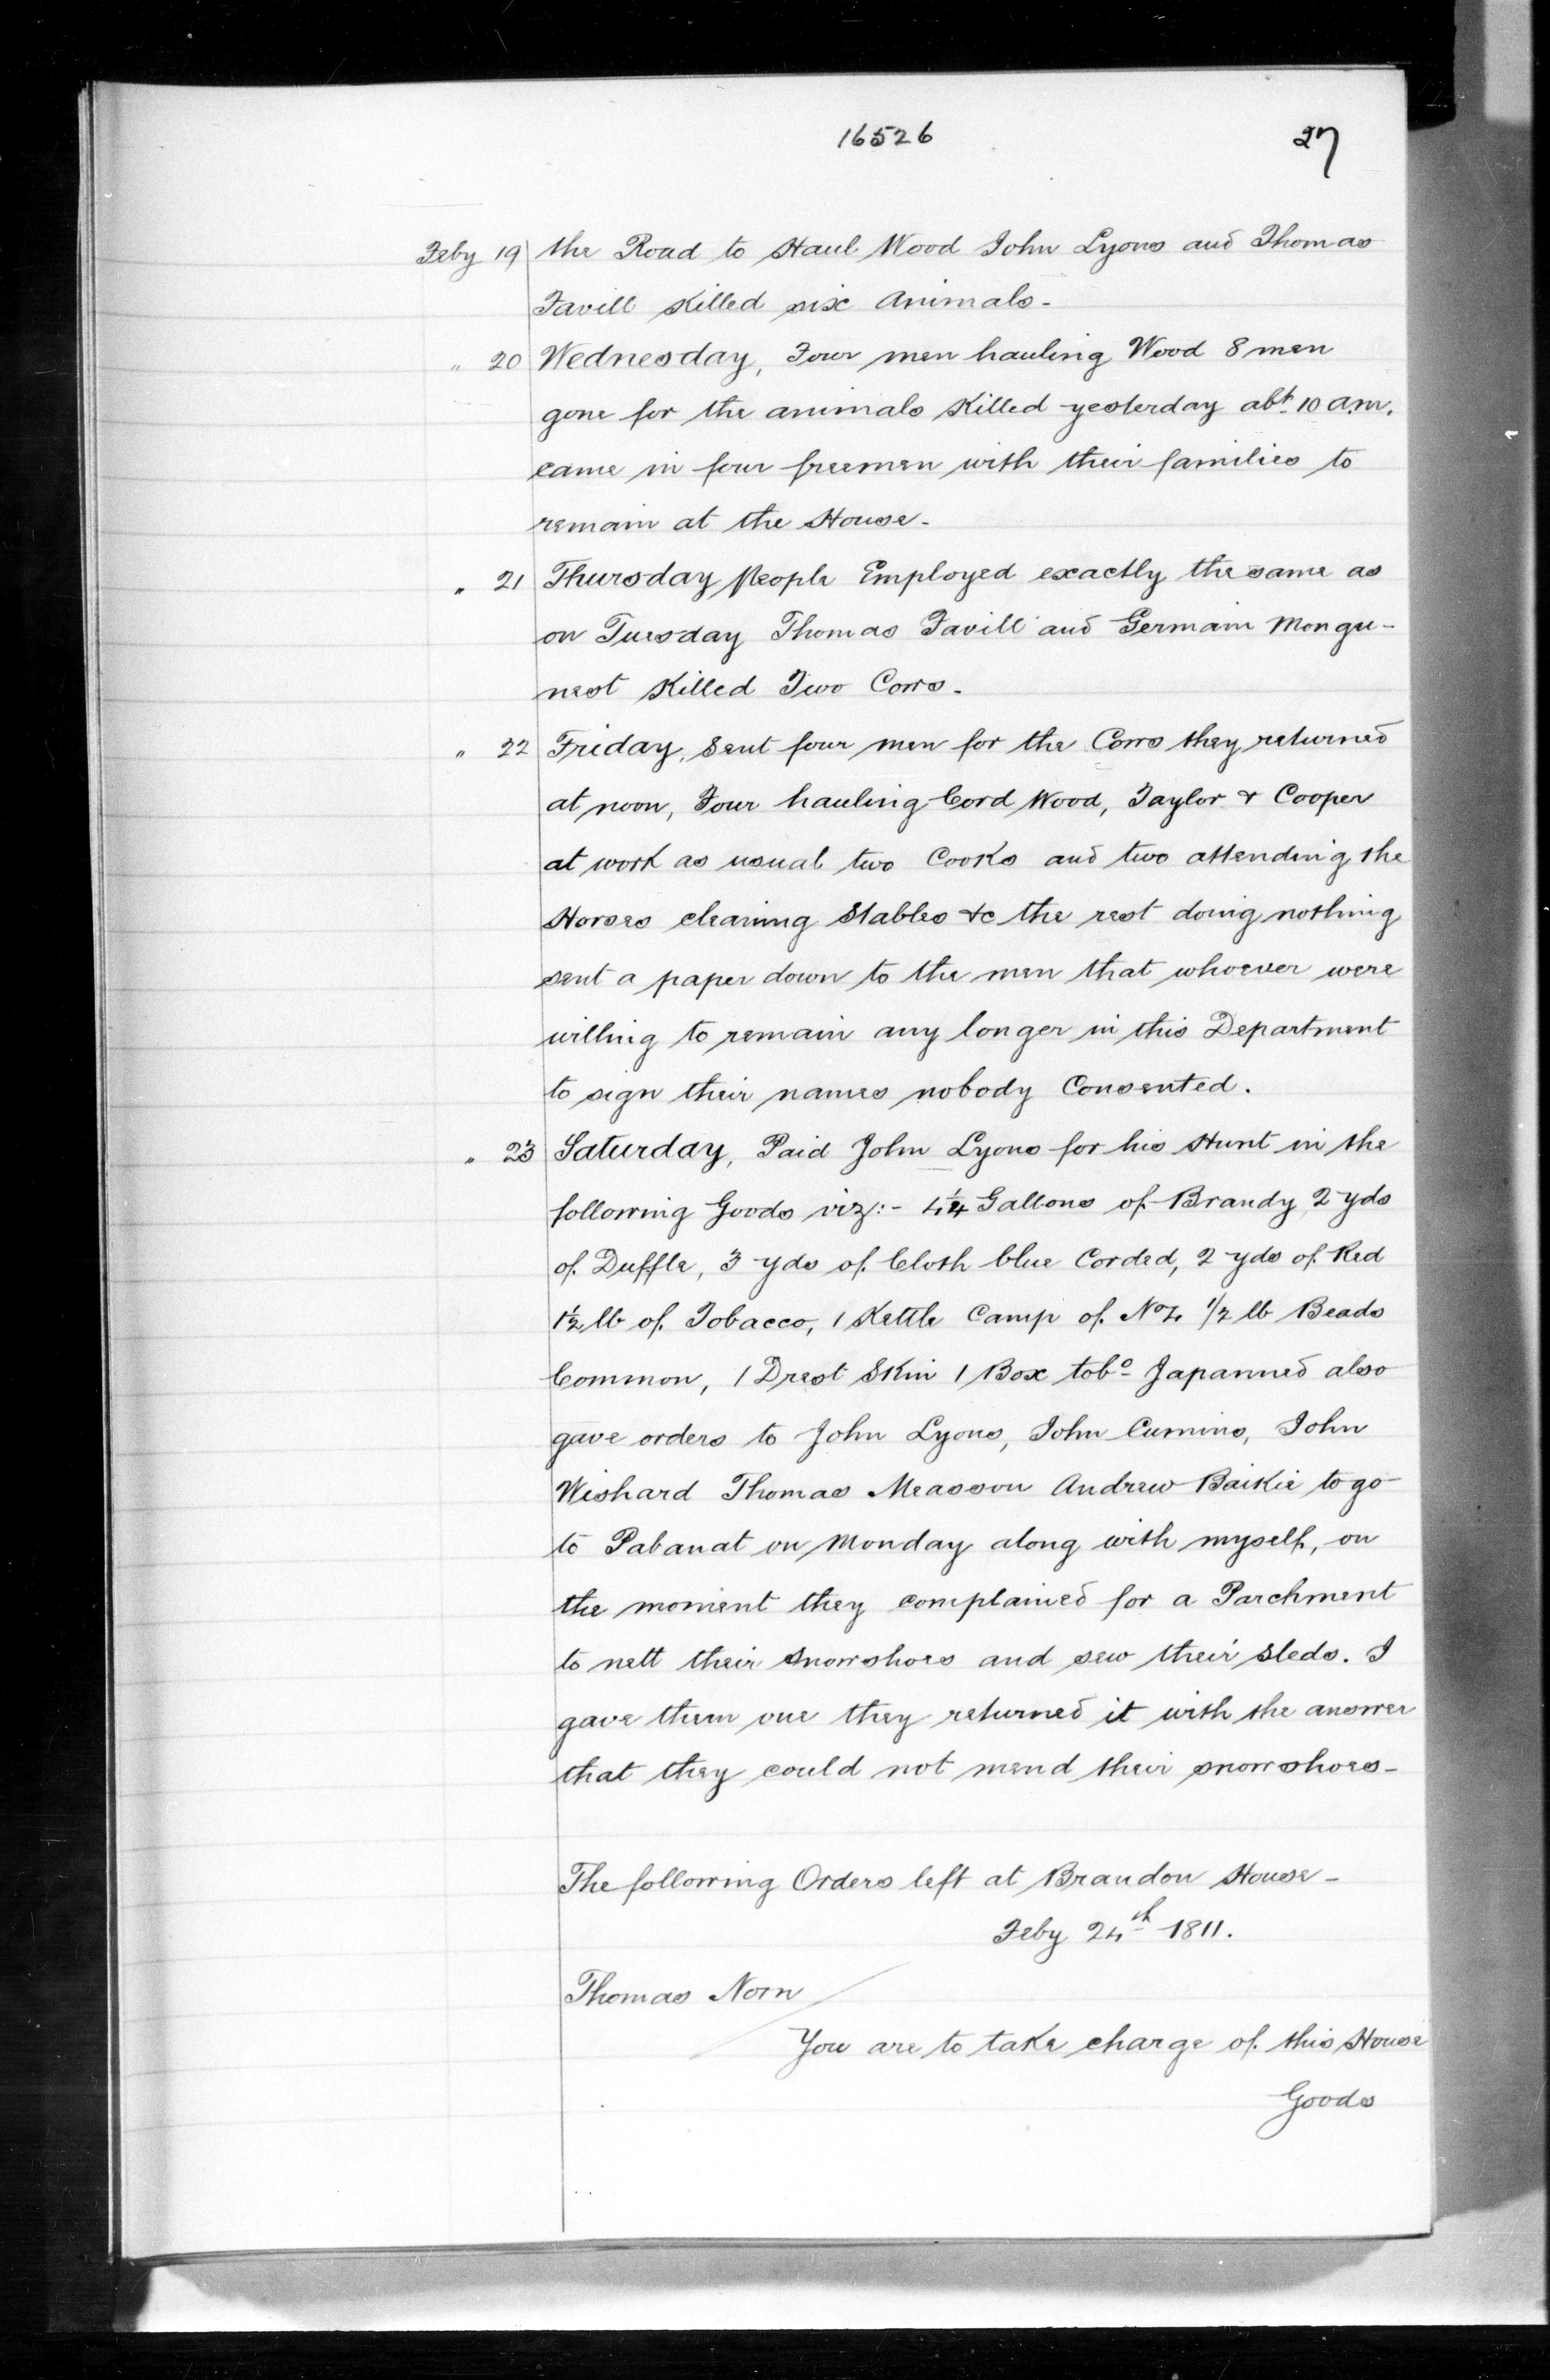 16526
27
Feby 19 the Road to Haul Wood John Lyons and Thomas
Favill Killed six Animals-
" 20 Wednesday, Four men hauling Wood 8 men
gone for the animals Killed yesterday abt 10 a.m.
came in four freemen with their families to
remain at the House-
" 21 Thursday People Employed exactly the same as
on Tuesday Thomas Favill and Germain Mongu-
nest Killed Two Cows-
" 22 Friday, Sent four men for the Cows they returned
at noon, Four hauling Cord Wood, Taylor & Cooper
at work as usual two Cooks and two attending the
Horses cleaning Stables &c the rest doing nothing
sent a paper down to the men that whoever were
willing to remain any longer in this Department
to sign their names nobody Consented.
" 23 Saturday, Paid John Lyons for his Hunt in the
following Goods viz:- 4¼ Gallons of Brandy 2 yds
of Duffle, 3 yds of Cloth blue Corded, 2 yds of Red
1½ lb of Tobacco, 1 Kettle Camp of No 4 1/2 lb Beads
Common, 1 Drest Skin 1 Box tobo Japanned also
gave orders to John Lyons, John Cumins, John
Wishard Thomas Measson Andrew Baikie to go
to Pabanat on Monday along with myself, on
the moment they complained for a Parchment
to nett their snowshoes and sew their sleds. I
gave them one they returned it with the answer
that they could not mend their snowshoes-
The following Orders left at Brandon House-
Feby 24th 1811.
Thomas Norn
You are to take charge of this House
Goods